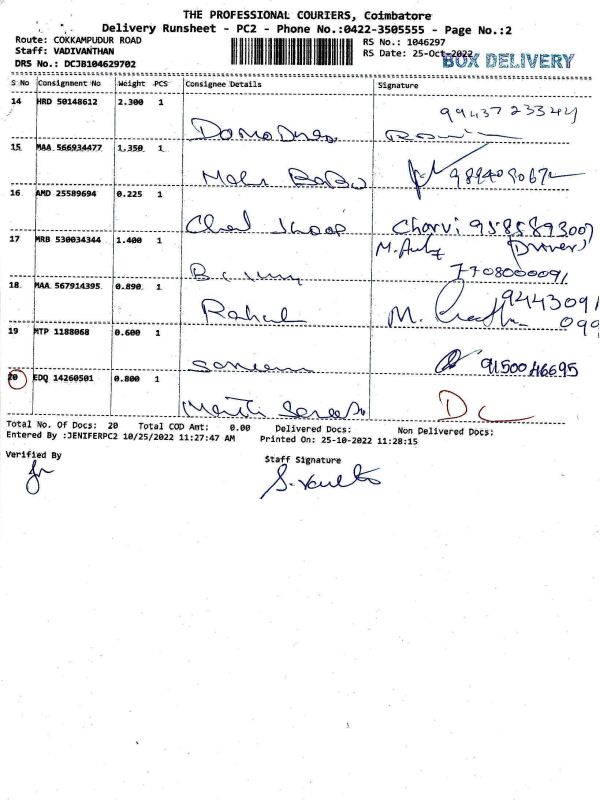 THE PROFESSIONAL COURIERS, Coimbatore
Delivery Runsheet - PC2 - Phone No.:0422-3505555 - Page No.:2
Route: COKKAMPUDUR ROAD
Staff: VADIVANTHAN
DRS No.: DCJB104629702
RS No.: 1046297
RS Date: 25-Oct-2022
BOX DELIVERY
S No Consignment No Weight PCS Consignee Details Signature
14 HRD 50148612 2.300 1
99437 23344
15 MAA 566934477 1.350 1
Babu
16 AMD 25589694 0.225 1
Charvi 9585893007
17 MRB 530034344 1.400 1
(Driver)
7708000091
18 MAA 567914395 0.890 1
Rahul M.
19 MTP 1188068 0.600 1
9150046695
20 EDQ 14260501 0.800 1
DC
Total No. Of Docs: 20 Total COD Amt: 0.00 Delivered Docs: Non Delivered Docs:
Entered By :JENIFERPC2 10/25/2022 11:27:47 AM Printed On: 25-10-2022 11:28:15
Verified By Staff Signature